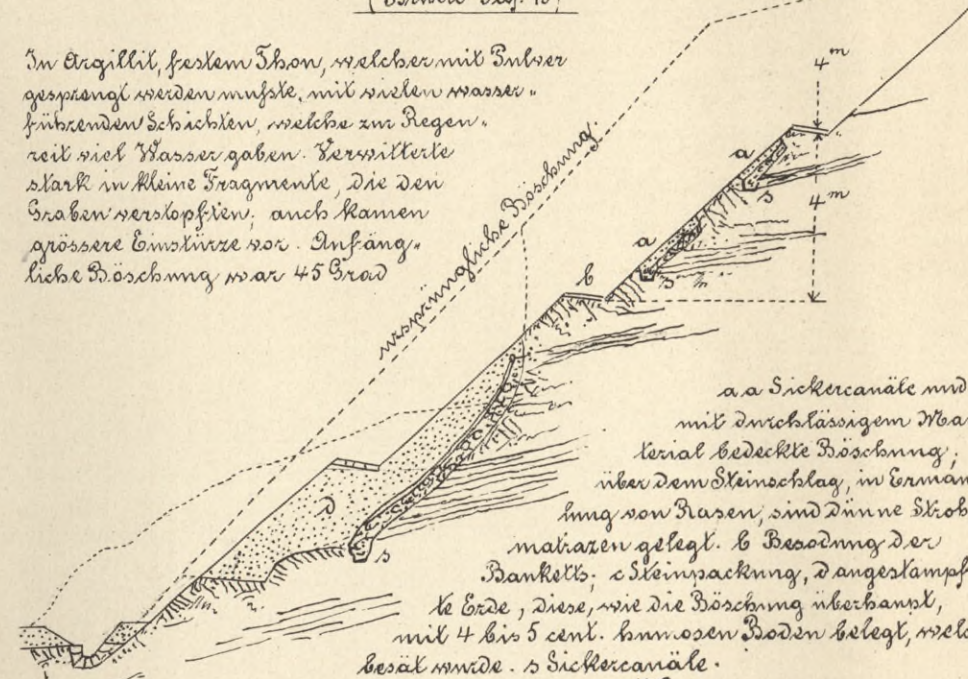 In Argillit, festem Thon, welcher mit Pulver
gesprengt werden mußte, mit vielen wasser-
führenden Schichten, welche zur Regen-
zeit viel Wasser gaben. Verwitterte
stark in kleine Fragmente, die den
Graben verstopften; auch kamen
grössere Einstürze vor. Anfäng-
liche Böschung war 45 Grad
ursprüngliche Böschung.
4 m
4 m
a
s
a
s
b
d
s
a a Sickercanäle und
mit durchlässigem Ma
terial bedeckte Böschung;
über dem Steinschlag, in Erman
lung von Rasen, sind dünne Stroh
matrazen gelegt. b Besodung der
Banketts; c Steinpackung, d angestampf
te Erde, diese, wie die Böschung überhaupt,
mit 4 bis 5 cent. humosen Boden belegt, welc
besät wurde. s Sickercanäle.